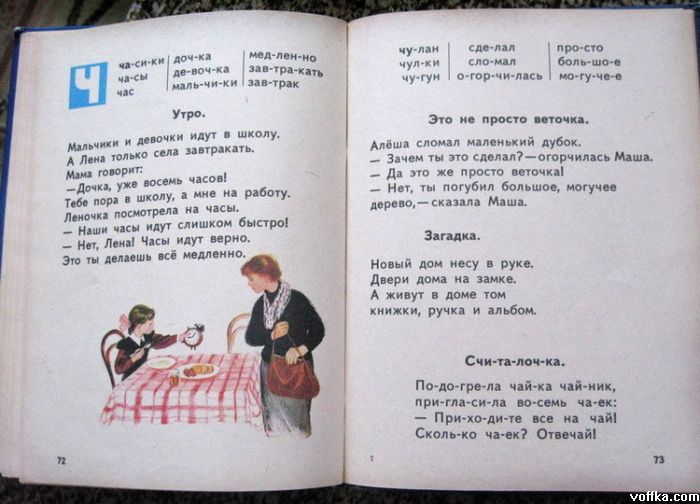 Ч
ча-си-ки
ча-сы
час
доч-ка
де-воч-ка
маль-чи-ки
мед-лен-но
зав-тра-кать
зав-трак
Утро.
Мальчики и девочки идут в школу.
А Лена только села завтракать.
Мама говорит:
—Дочка, уже восемь часов!
Тебе пора в школу, а мне на работу.
Леночка посмотрела на часы.
— Наши часы идут слишком быстро!
— Нет, Лена! Часы идут верно.
Это ты делаешь всё медленно.
72
чу-лан
чул-ки
чу-гун
сде-лал
сло-мал
о-гор-чи-лась
про-сто
боль-шо-е
мо-гу-че-е
Это не просто веточка.
Алёша сломал маленький дубок.
— Зачем ты это сделал?—огорчилась Маша.
— Да это же просто веточка!
— Нет, ты погубил большое, могучее
дерево,— сказала Маша.
Загадка.
Новый дом несу в руке.
Двери дома на замке.
А живут в доме том
книжки, ручка и альбом.
Счи-та-лоч-ка.
По-до-гре-ла чай-ка чай-ник,
при-гла-си-ла во-семь ча-ек:
— При-хо-ди-те все на чай!
Сколь-ко ча-ек? Отвечай!
7
73
voffka.com